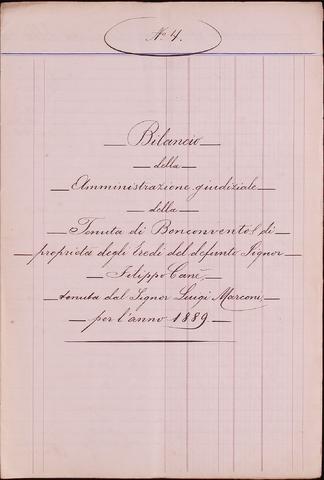 No 4.
Bilancio
della
Amministrazione giudiziale
della
Tenuta di Bonconvento di
proprietà degli Eredi del defunto Signor
Filippo Canè,
tenuta dal Signor Luigi Marconi,
per l'anno 1889.